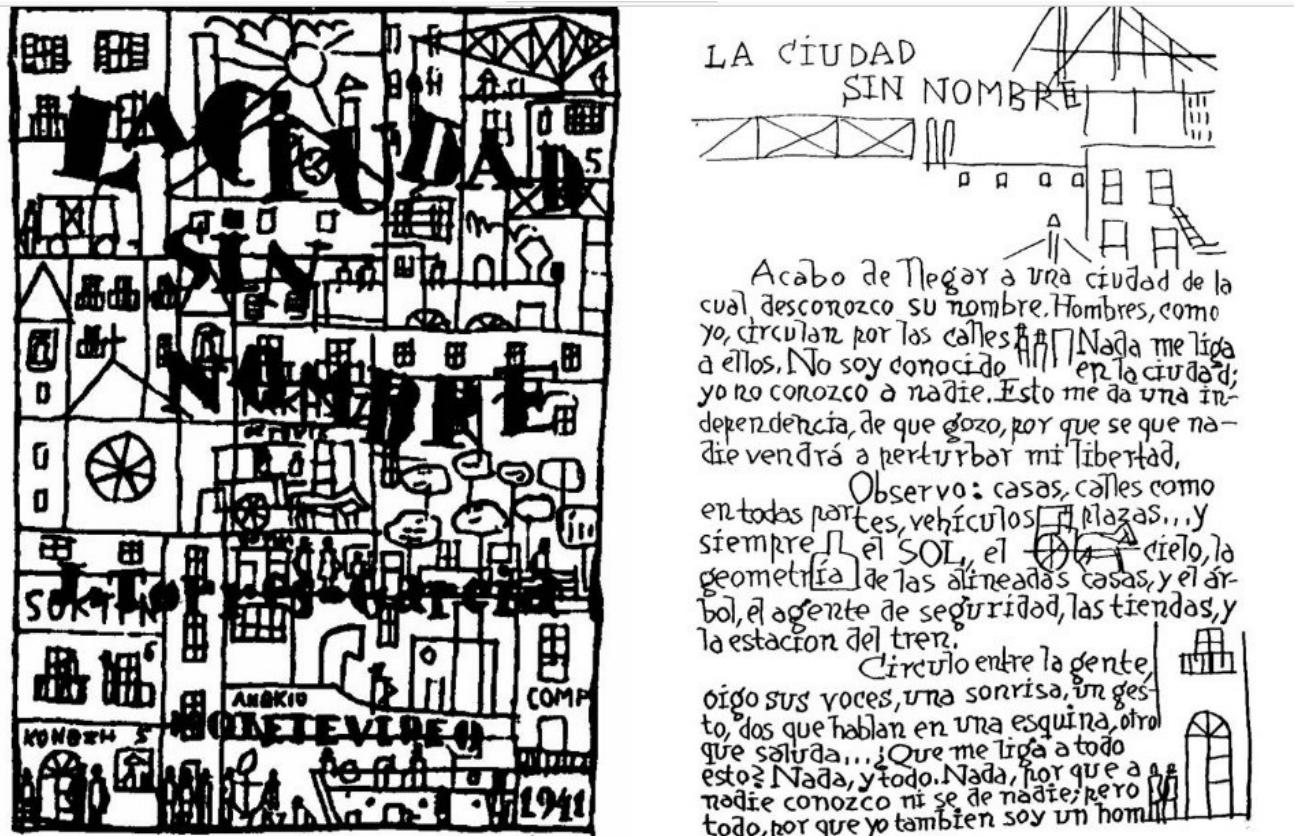 LA CIUDAD
SIN
NOMBRE
J. TORRES-GARCIA
MONTEVIDEO
1941
4
5
6
COMP
ANDKIO
5
LA CIUDAD
SIN NOMBRE
Acabo de llegar a una ciudad de la
cual, desconozco su nombre. Hombres, como
yo, circulan por las calles Nada me liga
a ellos. No soy conocido en la ciudad;
yo no conozco a nadie. Esto me da una in-
dependencia, de que gozo, por que se que na-
die vendrá a perturbar mi libertad.
Observo: casas, calles como
en todas partes, vehículos plazas...y
siempre el SOL, el cielo, la
geometría de las alineadas casas, y el ár-
bol, el agente de seguridad, las tiendas, y
la estacion del tren.
Circulo entre la gente,
oigo sus voces, una sonrisa, un ges-
to, dos que hablan en una esquina, otro
que saluda...¿Que me liga a todo
esto? Nada, y todo. Nada, por que a
nadie conozco ni se de nadie; pero
todo, por que yo tambien soy un hom